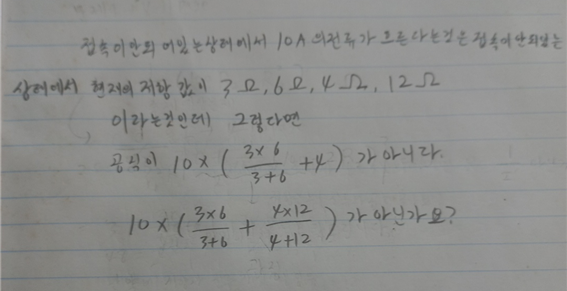 접속이 안되어있는상태에서 10A의전류가 흐른다는것은 접속이안되있는
상태에서 현재의 저항값이 3Ω, 6Ω, 4Ω, 12Ω
이라는것인데 그렇다면
공식이 10×( 3×6/3+6 +4) 가 아니다.
10×( 3×6/3+6 + 4×12/4+12 ) 가 아닌가요?